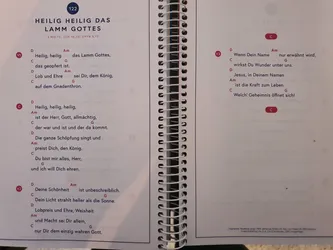 122
HEILIG HEILIG DAS
LAMM GOTTES
V1
D Am
Heilig, heilig das Lamm Gottes,
C G
das geopfert ist.
D Am
Lob und Ehre sei Dir, dem König,
C G
auf dem Gnadenthron.
C
D Am
Heilig, heilig, heilig,
C G
ist der Herr, Gott, allmächtig,
der war und ist und der da kommt.
D Am
Die ganze Schöpfung singt und
C G
preist Dich, den König.
Du bist mir alles, Herr;
und ich will Dich ehren.
V2
D Am
Deine Schönheit ist unbeschreiblich.
C G
Dein Licht strahlt heller als die Sonne.
D Am
Lobpreis und Ehre, Weisheit
und Macht sei Dir allein,
C G
nur Dir dem einzig wahren Gott.
C
V3
D Am
Wenn Dein Name nur erwähnt wird,
C G
wirkst Du Wunder unter uns.
D Am
Jesus, in Deinem Namen
C
ist die Kraft zum Leben.
G
Welch' Geheimnis öffnet sich!
C
C